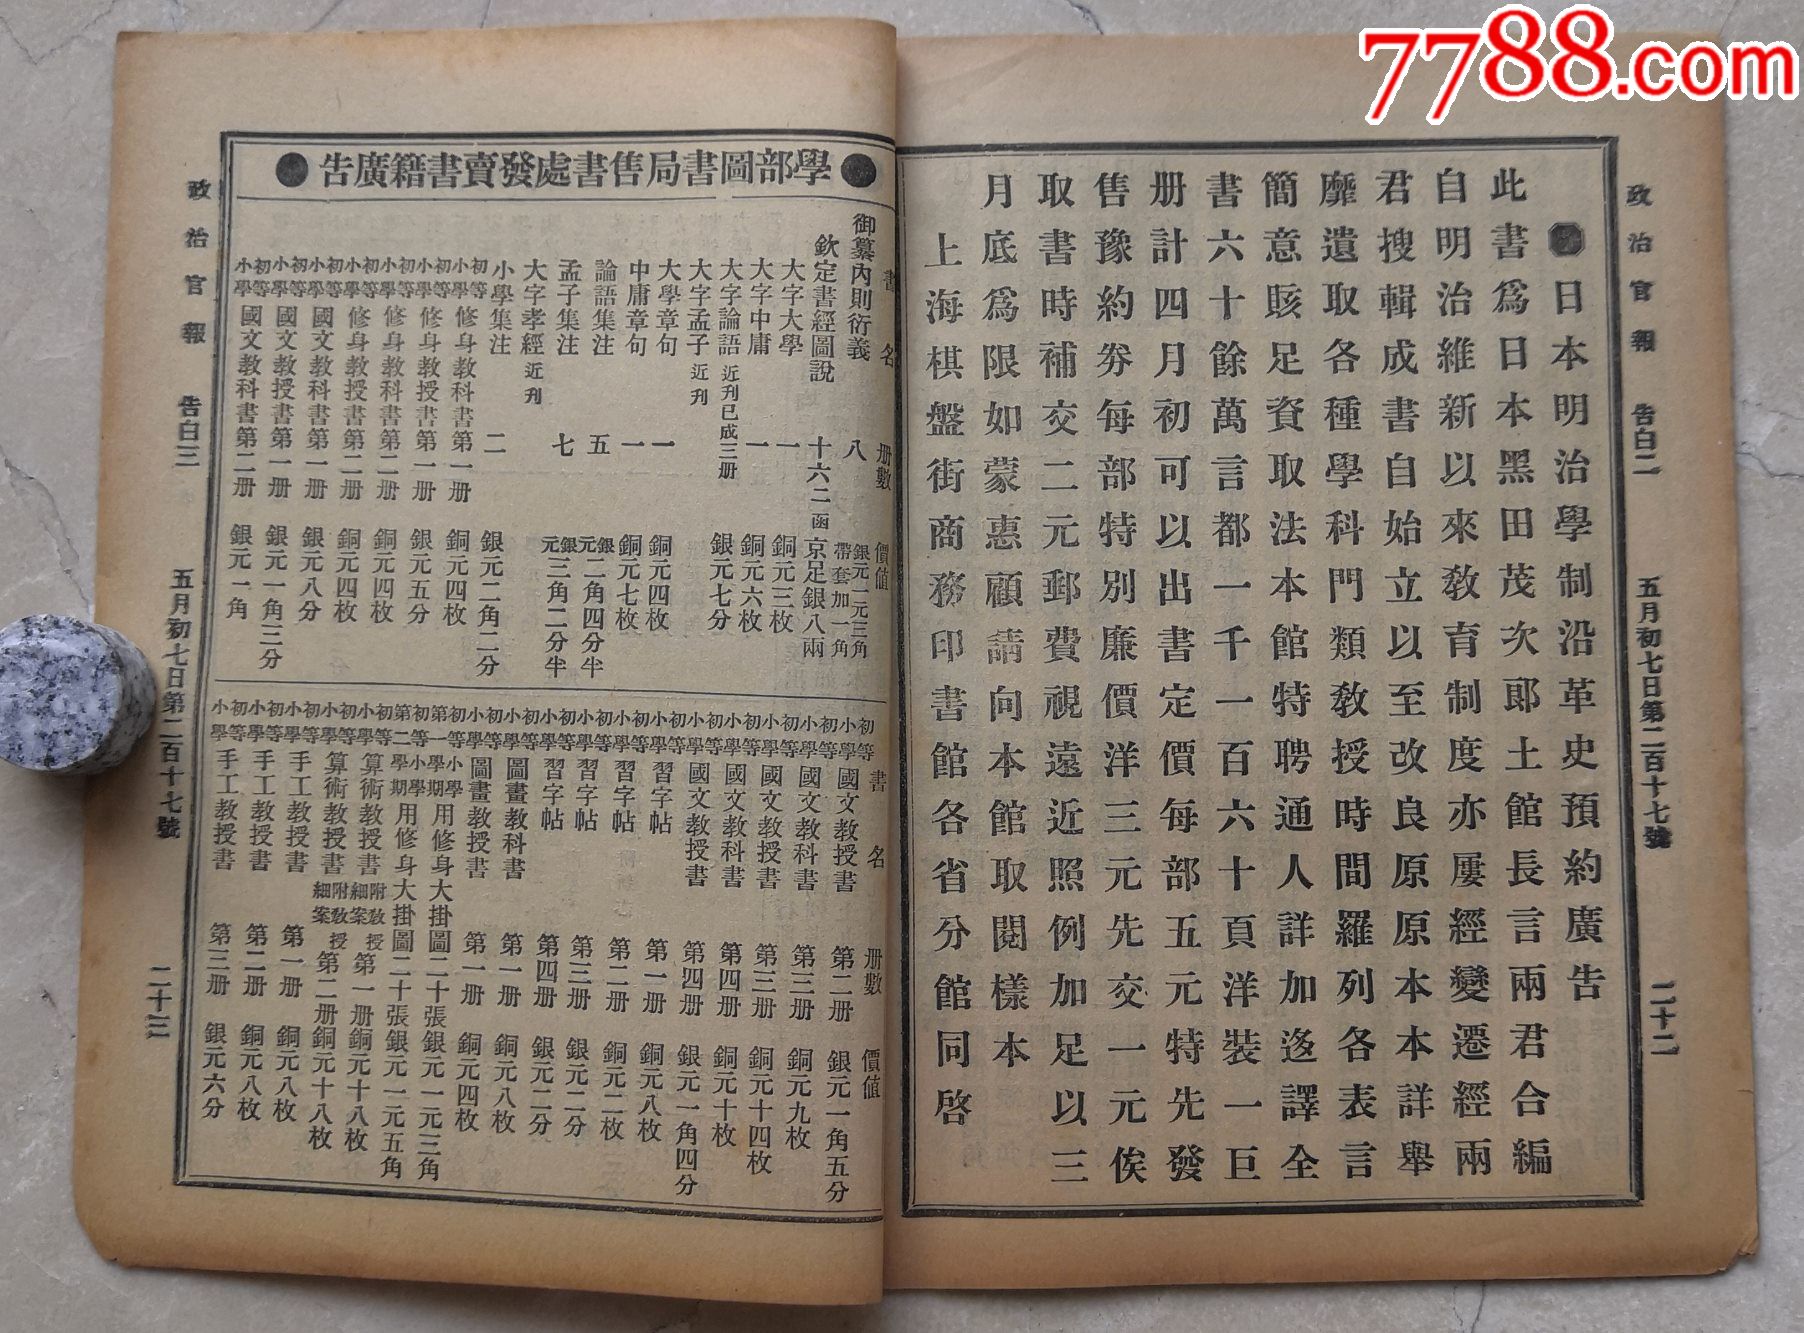 7788.com
政治官報 告白二 五月初七日第二百十七號 二十二
日本明治學制沿革史預約廣告
此書爲日本黑田茂次郞土館長言兩君合編
自明治維新以來敎育制度亦屢經變遷經兩
君搜輯成書自始立以至改良原原本本詳舉
靡遺取各種學科門類敎授時間羅列各表言
簡意賅足資取法本館特聘通人詳加迻譯全
書六十餘萬言都一千一百六十頁洋裝一巨
册計四月初可以出書定價每部五元特先發
售豫約券每部特別廉價洋三元先交一元俟
取書時補交二元郵費視遠近照例加足以三
月底爲限如蒙惠顧請向本館取閱樣本
上海棋盤街商務印書館各省分館同啓
學部圖書局售書處發賣書籍廣告
書名 册數 價値
御纂內則衍義 八 銀元一元三角帶套加一角
欽定書經圖說 十六二函 京足銀八兩
大字大學 一 銅元三枚
大字中庸 一 銅元六枚
大字論語 近刋已成三册 銀元七分
大字孟子 近刋
大學章句 一 銅元四枚
中庸章句 一 銅元七枚
論語集注 五 銀元二角四分半
孟子集注 七 銀元三角二分半
大字孝經 近刋
小學集注 二 銀元二角二分
初等小學修身敎科書第一册 銅元四枚
初等小學修身敎授書第一册 銀元五分
初等小學修身敎科書第二册 銅元四枚
初等小學修身敎授書第二册 銅元四枚
初等小學國文敎科書第一册 銀元八分
初等小學國文敎授書第一册 銀元一角三分
初等小學國文敎科書第二册 銀元一角
書名 册數 價値
初等小學國文敎授書 第二册 銀元一角五分
初等小學國文敎科書 第三册 銅元九枚
初等小學國文敎授書 第三册 銅元十四枚
初等小學國文敎科書 第四册 銅元十枚
初等小學國文敎授書 第四册 銀元一角四分
初等小學習字帖 第一册 銅元八枚
初等小學習字帖 第二册 銅元二枚
初等小學習字帖 第三册 銀元二分
初等小學習字帖 第四册 銀元二分
初等小學圖畫敎科書 第一册 銅元八枚
初等小學圖畫敎授書 第一册 銅元四枚
初等小學第一學期用修身大掛圖二十張 銀元一元三角
初等小學第二學期用修身大掛圖二十張 銀元一元五角
初等小學算術敎授書附敎授細案 第一册 銅元十八枚
初等小學算術敎授書附敎授細案 第二册 銅元十八枚
初等小學手工敎授書 第一册 銅元八枚
初等小學手工敎授書 第二册 銅元八枚
初等小學手工敎授書 第三册 銀元六分
政治官報 告白三 五月初七日第二百十七號 二十三